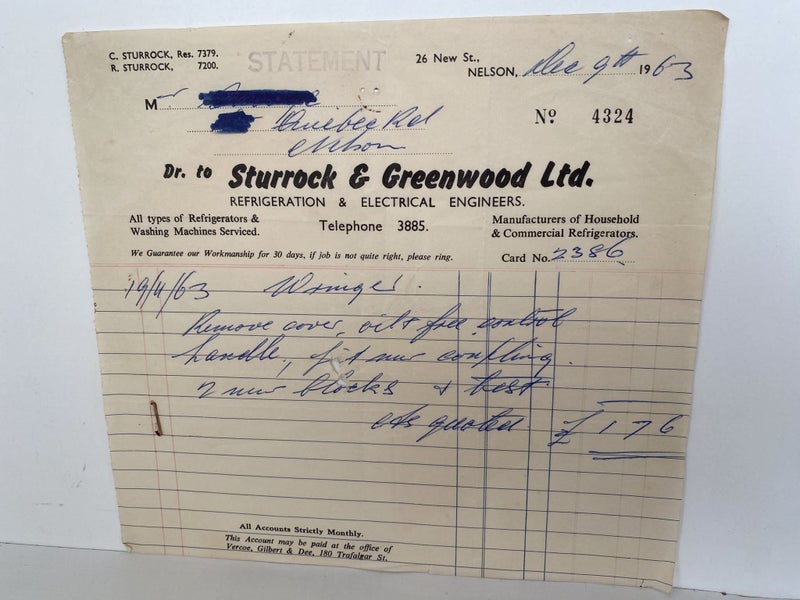 C. STURROCK, Res. 7379.
R. STURROCK, 7200.
STATEMENT
26 New St.,
NELSON, Dec 9th 1963
Mr
Quebec Rd
Nelson
No 4324
Dr. to Sturrock & Greenwood Ltd.
REFRIGERATION & ELECTRICAL ENGINEERS.
All types of Refrigerators &
Washing Machines Serviced.
Telephone 3885.
Manufacturers of Household
& Commercial Refrigerators.
We Guarantee our Workmanship for 30 days, if job is not quite right, please ring.
Card No. 2386
19/11/63 Wringer.
Remove cover, oil & free control
handle, fit new coupling.
2 new blocks & test
As quoted £ 1 7 6
All Accounts Strictly Monthly.
This Account may be paid at the office of
Vercoe, Gilbert & Dee, 180 Trafalgar St.